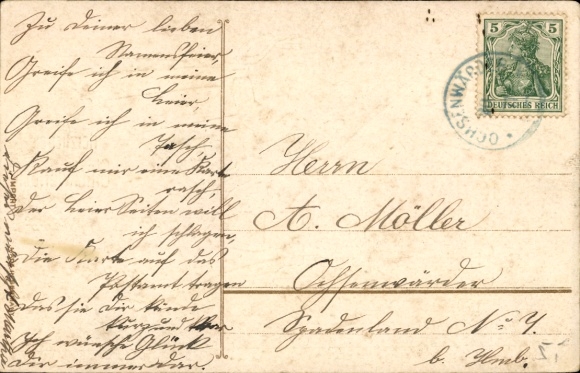 Zu Deiner lieben
Namensfeier,
Greife ich in meine
Leier.
Greife ich in meine
Tasch,
Kauf mir eine Kart
rasch,
Der Leier Seiten will
ich schlagen,
Die Karte auf das
Postamt tragen
Das sie Dir künde
kurz und klar
Ich wünsche Glück
Dir immerdar.
5 5
DEUTSCHES REICH
OCHSENWÄRDER
Herrn
A. Möller
Ochsenwärder
Spadenland No 4.
b. Hmb.